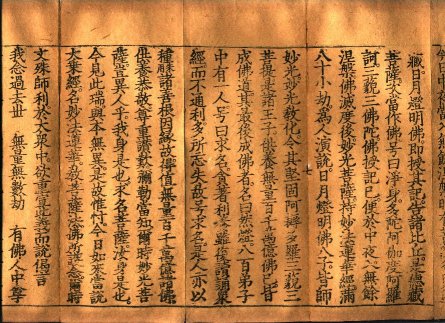 藏日月燈明佛即授其記告諸比丘是德藏
菩薩次當作佛号曰淨身多陀阿伽度阿羅
訶三藐三佛陀佛授記已便於中夜入無餘
涅槃佛滅度後妙光菩薩持妙法蓮華經滿
八十小劫為人演說日月燈明佛八子皆師
妙光妙光教化令其堅固阿耨多羅三藐三
菩提是諸王子供養無量百千萬億佛已皆
成佛道其最後成佛者名曰燃燈八百弟子
中有一人号曰求名貪著利養雖復讀誦衆
經而不通利多所忘失故号求名是人亦以
種諸善根因緣故得值無量百千萬億諸佛
供養恭敬尊重讚歎彌勒當知爾時妙光菩
薩豈異人乎我身是也求名菩薩汝身是也
今見此瑞與本無異是故惟忖今日如來當說
大乘經名妙法蓮華教菩薩法佛所護念爾時
文殊師利於大衆中欲重宣此義而說偈言
我念過去世　無量無數劫　有佛人中尊